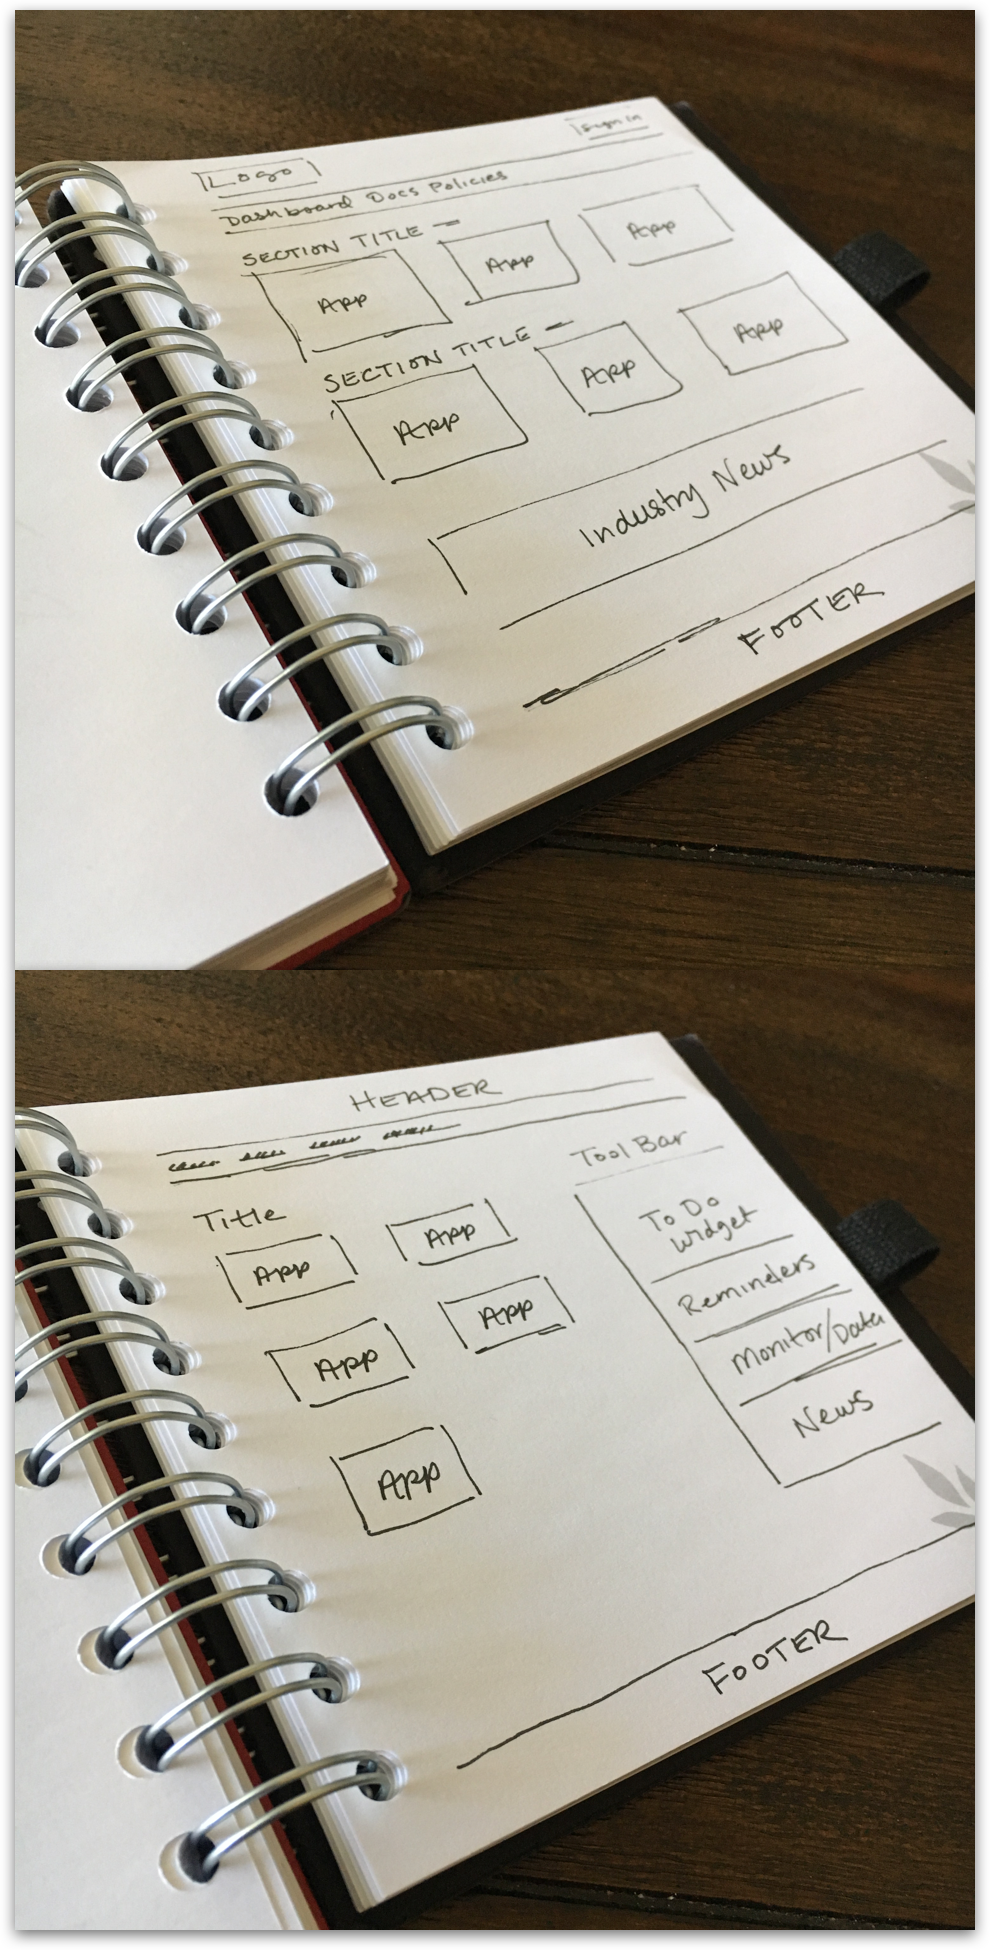 Logo
Sign in
Dashboard Docs Policies
SECTION TITLE
App App App
SECTION TITLE
App App App
Industry News
FOOTER
HEADER
Tool Bar
Title
App App
App App
App
To Do
Widget
Reminders
Monitor/Data
News
FOOTER